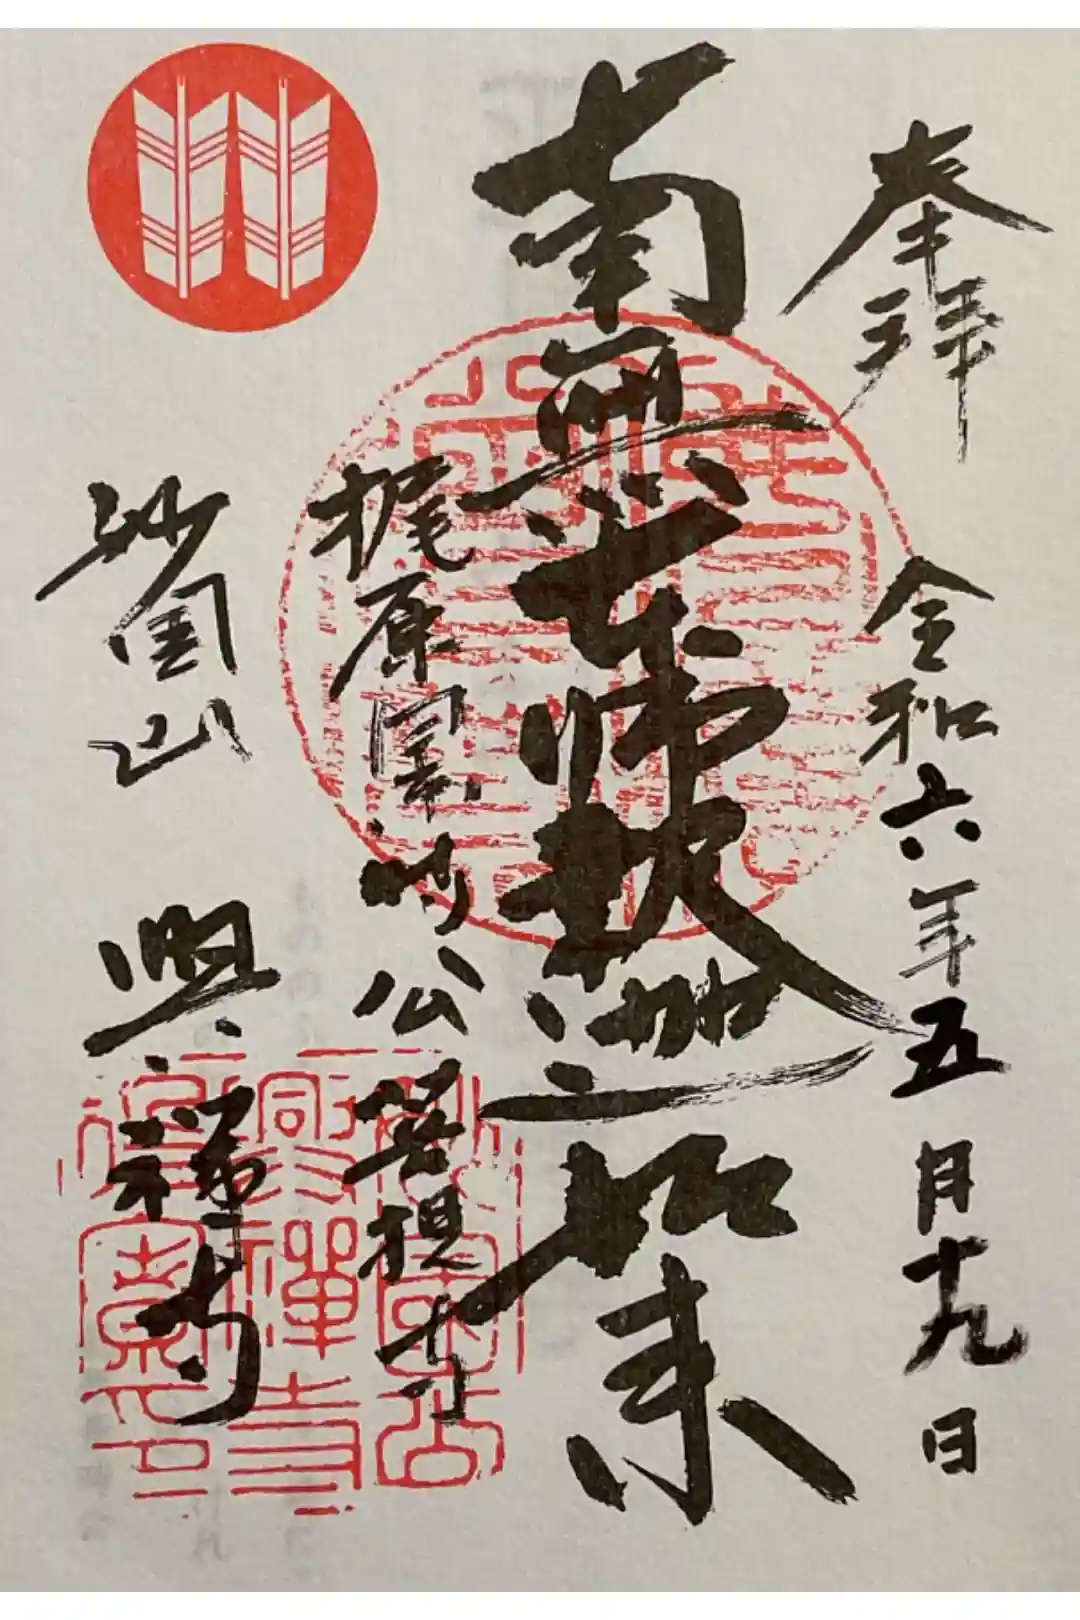 奉拝
令和六年五月十九日
南無本師釈迦如来
梶原景時公菩提寺
山 興禅寺